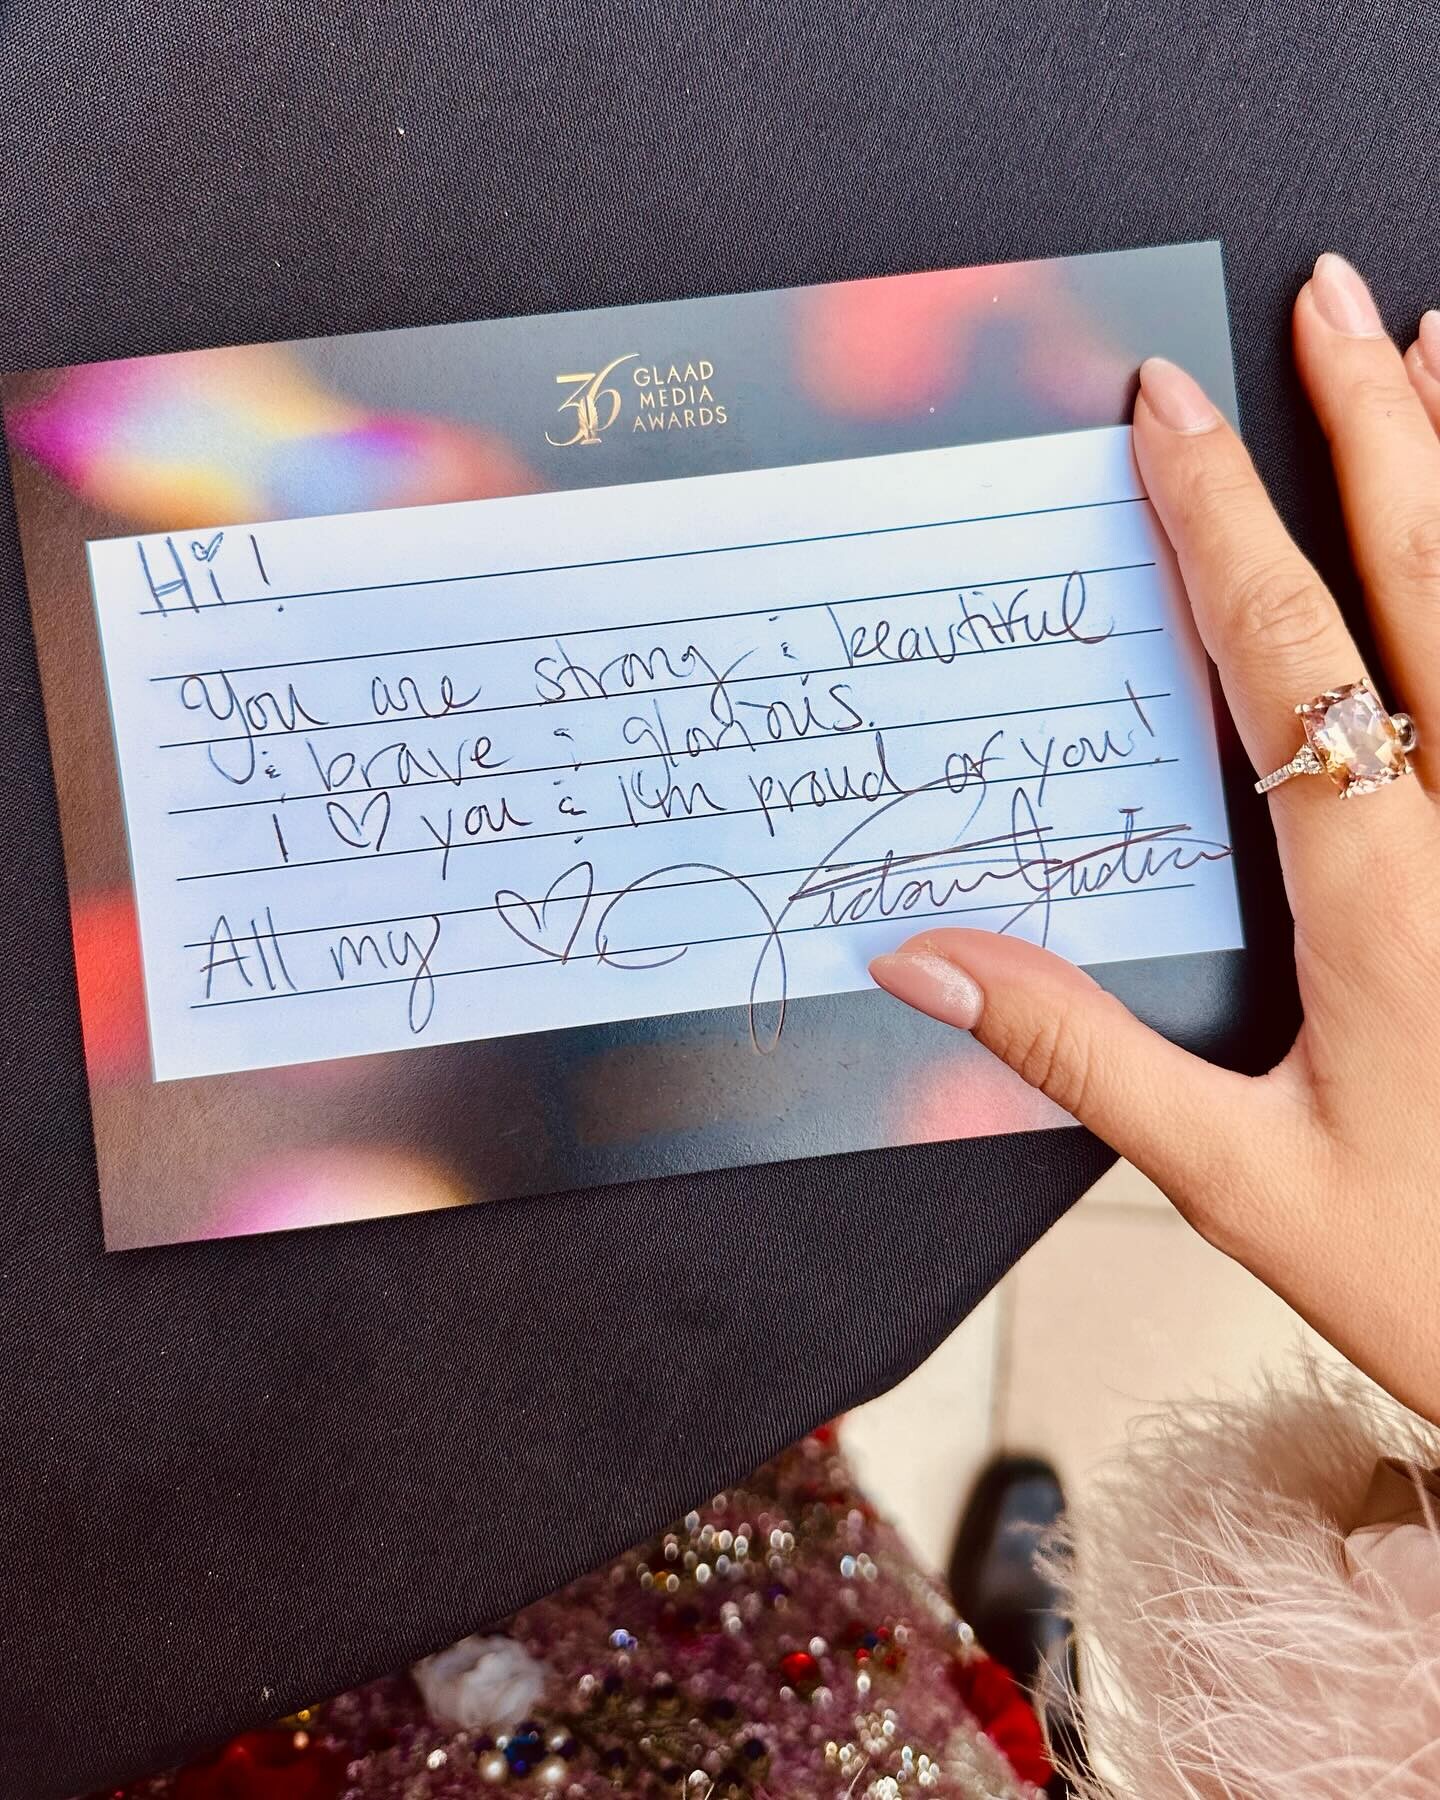 36 GLAAD
MEDIA
AWARDS
Hi!
You are strong & beautiful
& brave & glorious.
I ♡ you & I'm proud of you!
All my ♡